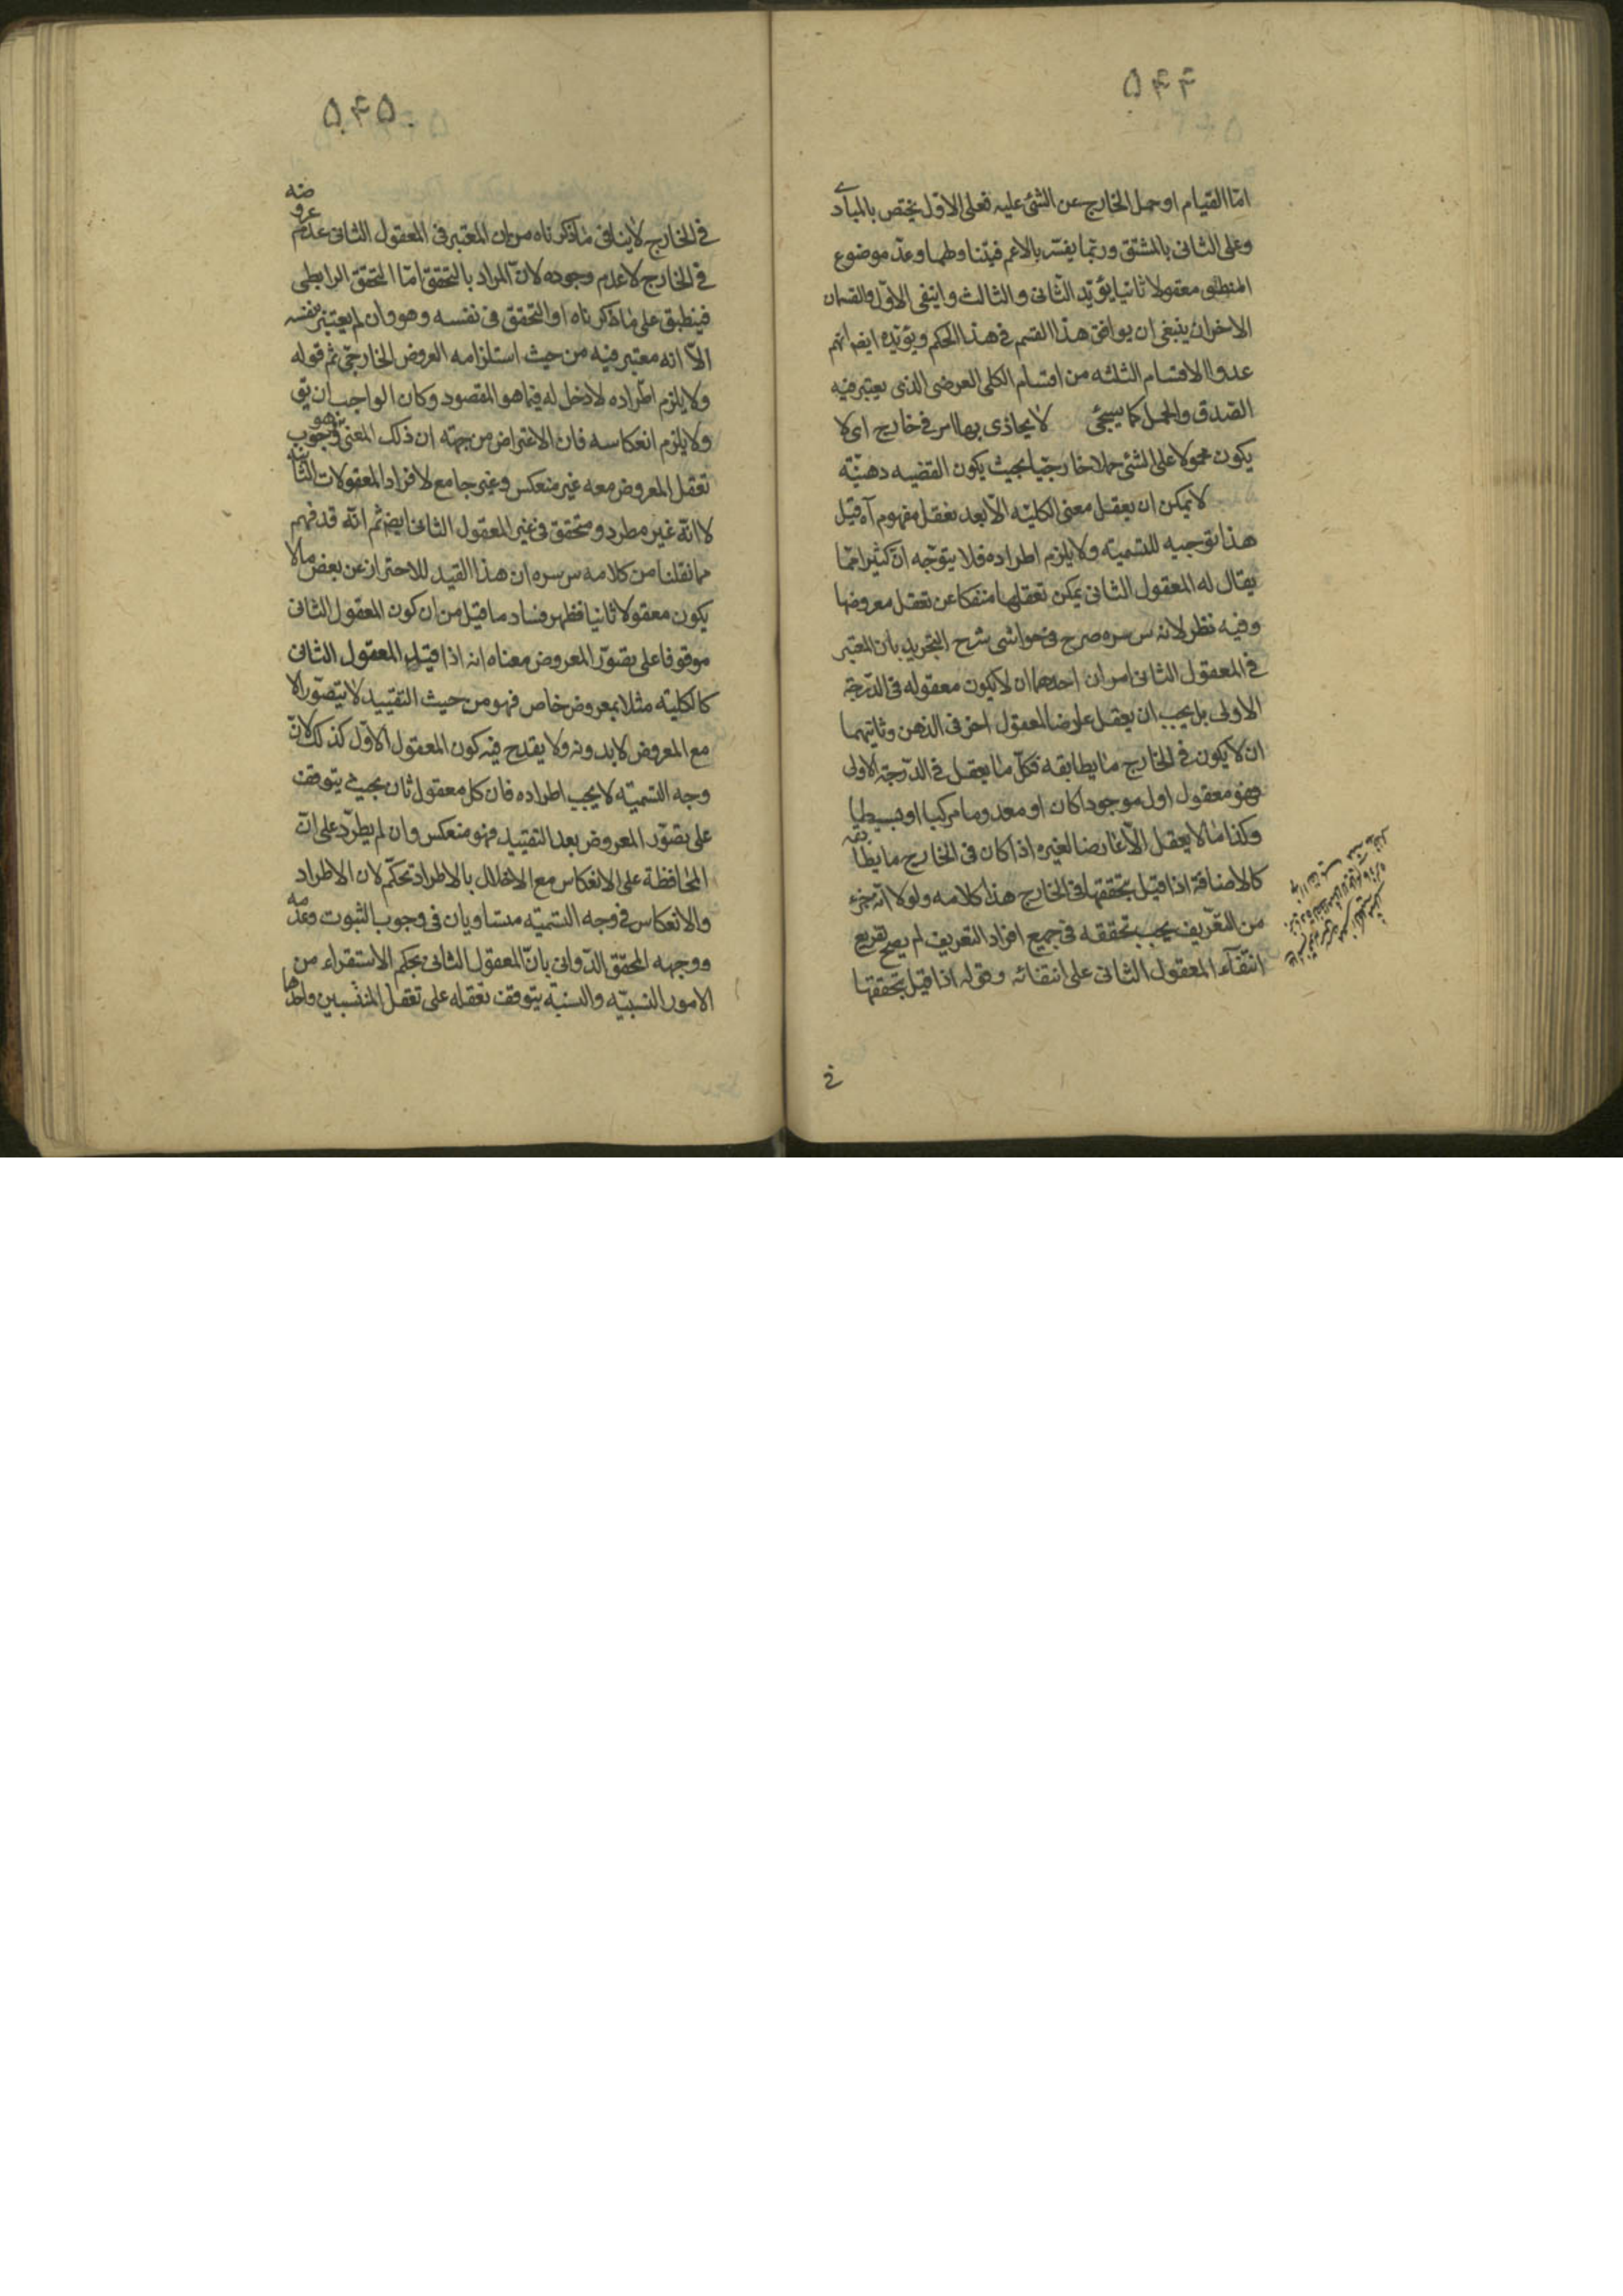 ۵۴۴
اما القيام او حمل الخارج عن الشئ عليه فعلى الاول يختص بالمبادى
وعلى الثانى بالمشتق وربما يفسّر بالاعم فيتناولهما وعدّ موضوع
المنطقى معقولا ثانيا يؤيّد الثانى والثالث وينفى الاوّل والقسمان
الاخران ينبغى ان يوافق هذا القسم فى هذا الحكم ويؤيّده ايضا انهم
عدوا الاقسام الثلثه من اقسام الكلى العرضى الذى يعتبر فيه
الصدق والحمل كما سيجئ لا يحاذى بها امر فى خارج اى لا
يكون محمولا على الشئ حملا خارجيّا بحيث يكون القضيه ذهنيّة
لا يمكن ان يعقل معنى الكليّة الّا بعد تعقل مفهوم آه قيل
هذا توجيه للتسمية ولا يلزم اطراده فلا يتوجّه انّ كثيرا ممّا
يقال له المعقول الثانى يمكن تعقلها منفكا عن تعقل معروضها
وفيه نظر لانه س سره صرح فى حواشى شرح التجريد بان المعتبر
فى المعقول الثانى امران احدهما ان لا يكون معقوله فى الدّرجة
الاولى بل يجب ان يعقل عارضا لمعقول اخر فى الذهن وثانيهما
ان لا يكون فى الخارج ما يطابقه فكلّ ما يعقل فى الدّرجة الاولى
فهو معقول اول موجودا كان او معدوما مركبا او بسيطا
وكذا ما لا يعقل الّا عارضا لغيره اذا كان فى الخارج ما يطابقه
كالاضافة اذا قيل بتحققها فى الخارج هذا كلامه ولولا انّه جزء
من التعريف يجب تحققه فى جميع افراد التعريف لم يصح تفريع
انتفاء المعقول الثانى على انتفائه وقوله اذا قيل بتحققها
فى
۵۴۵
فى الخارج لا ينافى ما ذكرناه من ان المعتبر فى المعقول الثانى عدم عروضه
فى الخارج لا عدم وجوده لانّ المراد بالتحقق امّا التحقق الرابطى
فينطبق على ما ذكرناه او التحقق فى نفسه وهو وان لم يعتبر بنفسه
الّا انه معتبر فيه من حيث استلزامه العروض الخارجىّ ثم قوله
ولا يلزم اطّراده لا دخل له فيما هو المقصود وكان الواجب ان يق
ولا يلزم انعكاسه فان الاعتراض من جهة ان ذلك المعنى وهو وجوب
تعقل المعروض معه غير منعكس وغير جامع لافراد المعقولات الثانيه
لا انّه غير مطرد ومتحقق فى غير المعقول الثانى ايضا ثم انّه قد فهم
مما نقلنا من كلامه س سره ان هذا القيد للاحتراز عن بعض ما لا
يكون معقولا ثانيا فظهر فساد ما قيل من ان كون المعقول الثانى
موقوفا على تصوّر المعروض معناه انه اذا قيّد المعقول الثانى
كالكلية مثلا بمعروض خاص فهو من حيث التقييد لا يتصوّر الا
مع المعروض لا بدونه ولا يقدح فيه كون المعقول الاوّل كذلك لانّ
وجه التسمية لا يجب اطراده فان كل معقول ثان بحيث يتوقف
على تصوّر المعروض بعد التقييد فهو منعكس وان لم يطرّد على انّ
المحافظة على الانعكاس مع الاخلال بالاطراد تحكّم لان الاطراد
والانعكاس فى وجه التسميه متساويان فى وجوب الثبوت وعدمه
ووجهه المحقق الدّوانى بانّ المعقول الثانى بحكم الاستقراء من
الامور النسبيّه والنسبة يتوقف تعقله على تعقل المنتسبين واحدهما